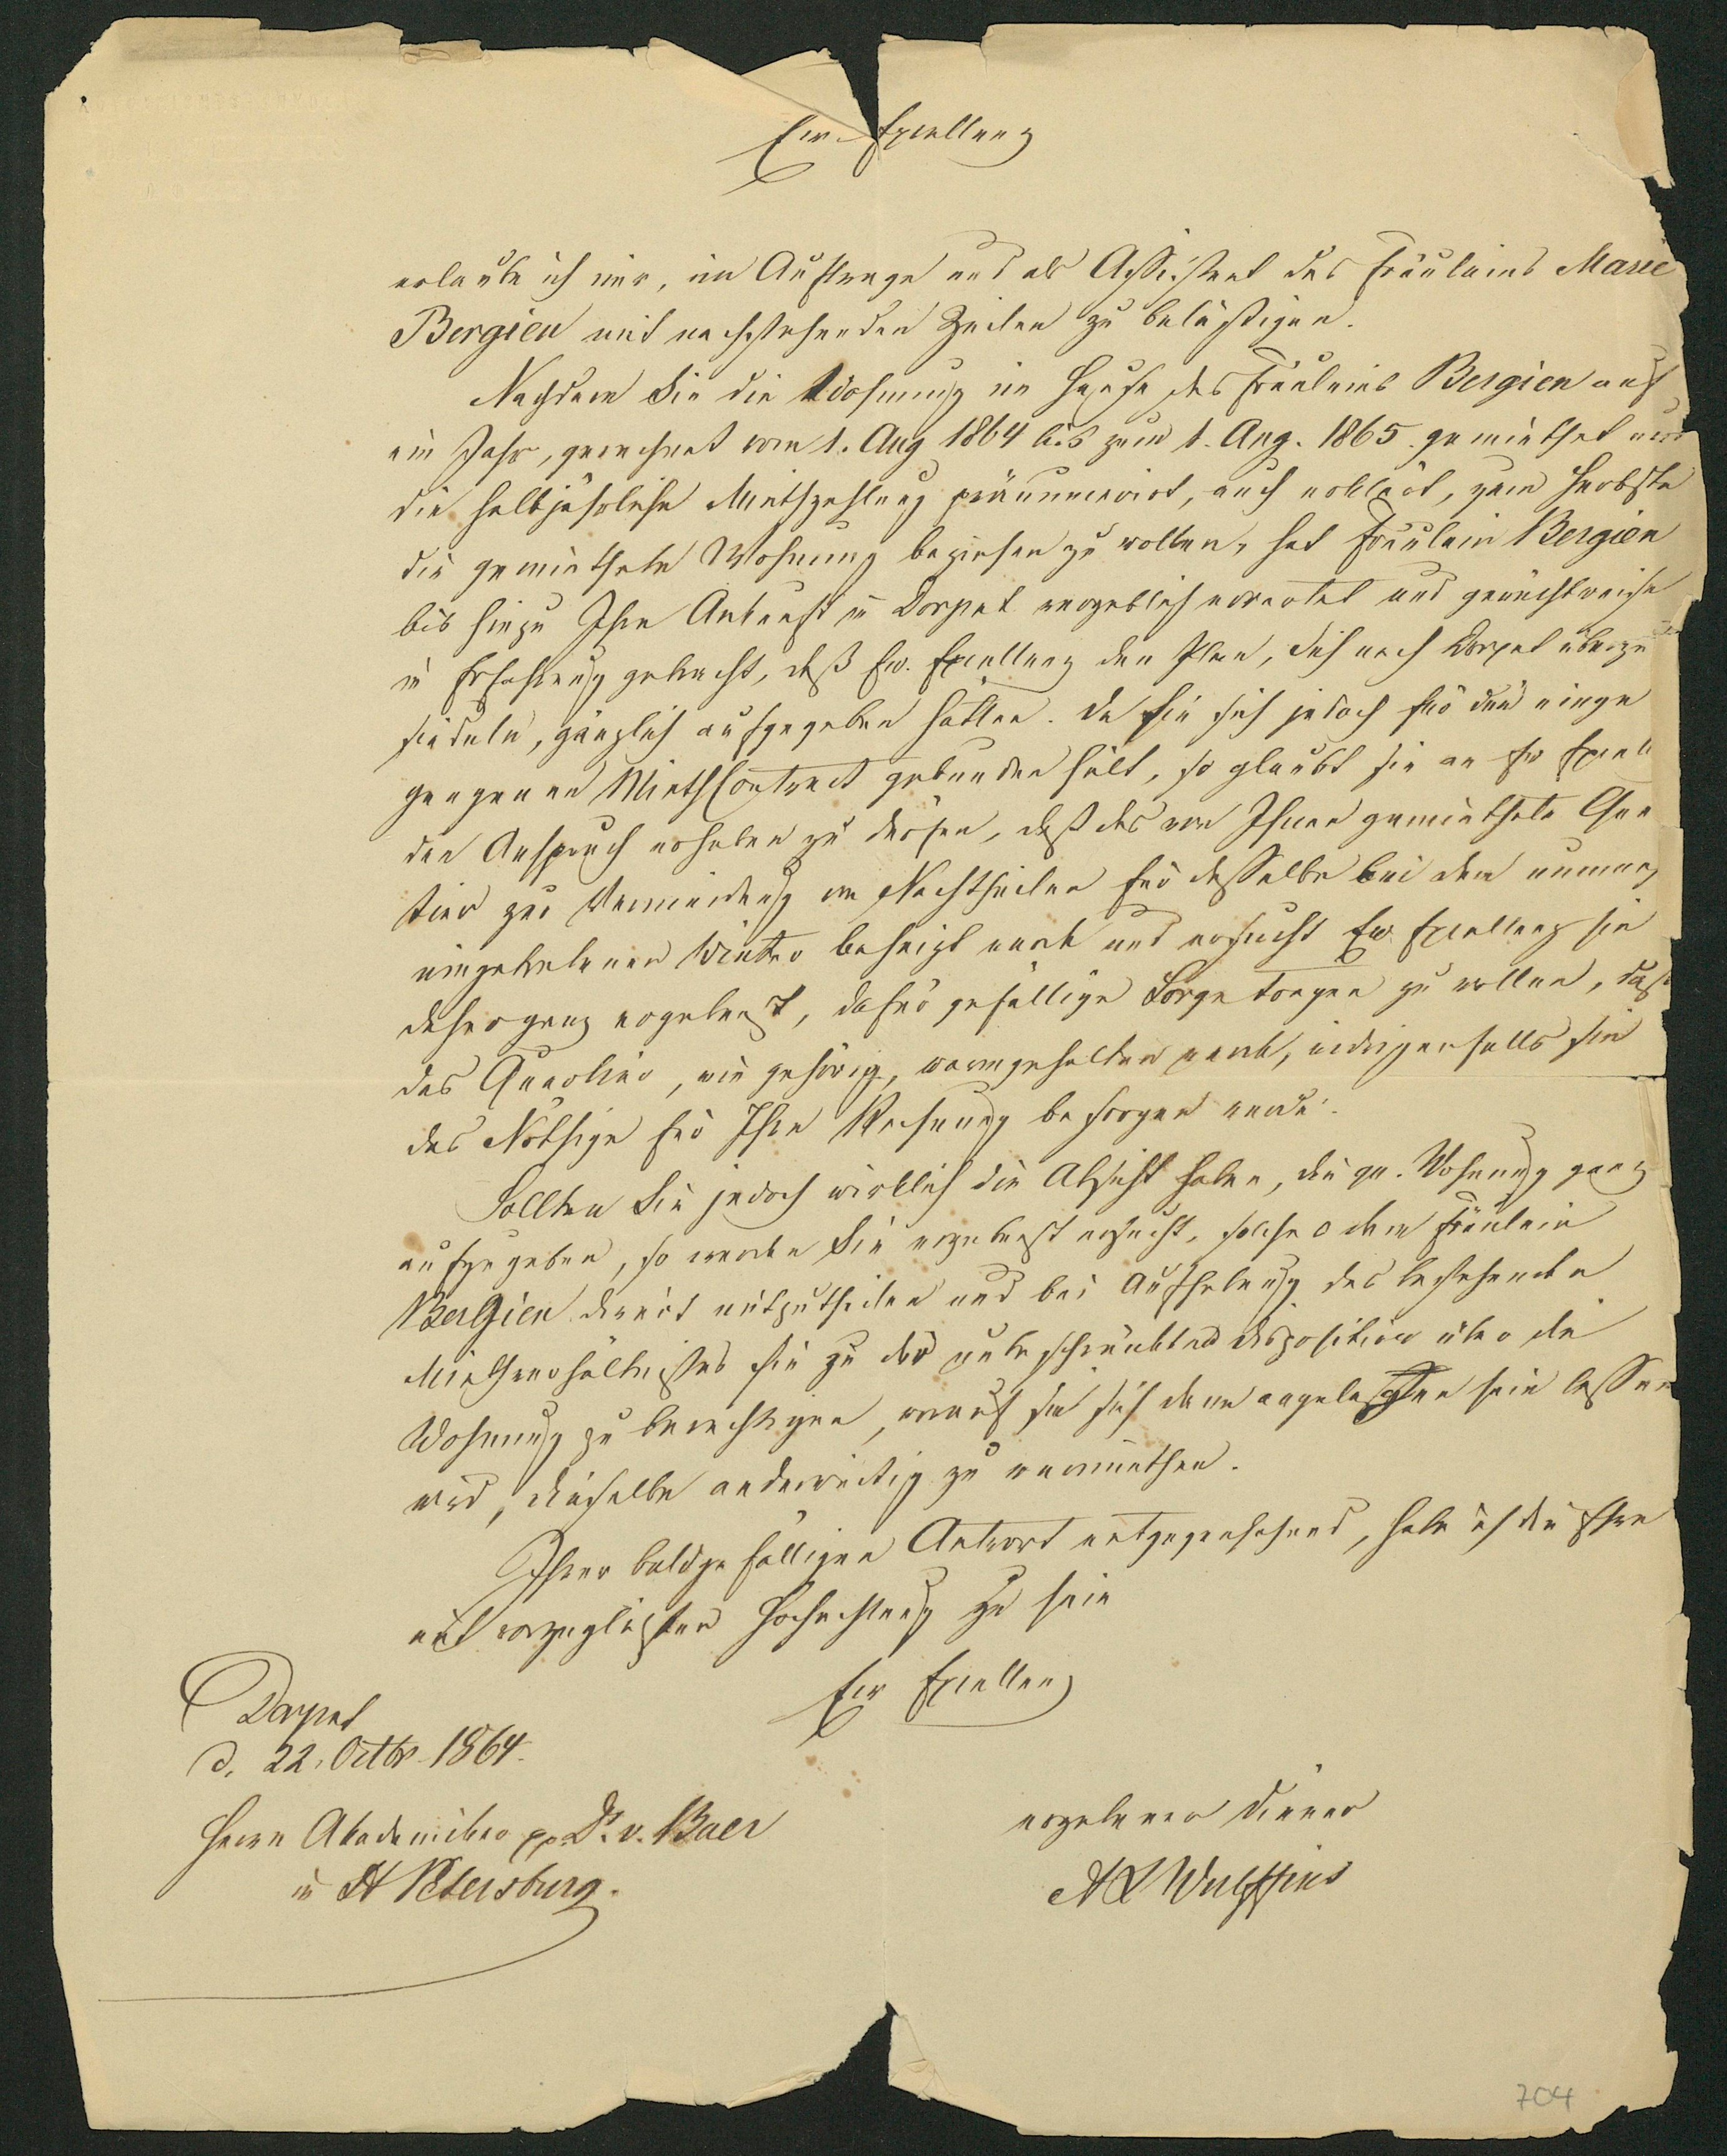 Ew. Excellenz
erlaube ich mir, im Auftrage und als Assistent des Fräuleins Marie
Bergien mit nachstehenden Zeilen zu belästigen.
Nachdem Sie die Wohnung im Hause des Fräuleins Bergien auf
ein Jahr, gerechnet vom 1. Aug 1864 bis zum 1. Aug. 1865. gemiethet und
die halbjährliche Miethzahlung pränumerirt, auch erklärt, zum Herbste
die gemiethete Wohnung beziehen zu wollen, hat Fräulein Bergien
bis hiezu Ihre Ankunft in Dorpat vergeblich erwartet und gerüchtweise
in Erfahrung gebracht, daß Ew. Excellenz den Plan, sich nach Dorpat überzu
siedeln, gänzlich aufgegeben hätten. Da sie sich jedoch für den einge
gangenen MiethContract gebunden hält, so glaubt sie an Ew Excell
den Anspruch erheben zu dürfen, daß das von Ihnen gemiethete Quar
tier zur Vermeidung von Nachtheilen für dasselbe bei dem nunmehr
eingetretenen Winter beheizt werde und ersucht Ew. Excellenz sie
daher ganz ergebenst, dafür gefällige Sorge tragen zu wollen, daß
das Quartier, wie gehörig, warmgehalten werde, widrigenfalls sie
das Nöthige für Ihre Rechnung besorgen werde.
Sollten Sie jedoch wirklich die Absicht haben, die qu. Wohnung ganz
aufzugeben, so werden Sie ergebenst ersucht, solches dem Fräulein
Bergien direct mitzutheilen und bei Aufhebung des bestehenden
Miethverhältnisses sie zu der unbeschränkten Disposition über die
Wohnung zu berechtigen, worauf sie sich dann angelegen sein lassen
wird, dieselbe anderweitig zu vermiethen.
Ihrer baldgefälligen Antwort entgegensehend, habe ich die Ehre
mit vorzüglichster Hochachtung zu sein
Ew Excellenz
Dorpat
d. 22. Octbr. 1864.
ergebener Diener
Herrn Akademiker pp. Dr. v. Baer
in St Petersburg.
A L Wulffius
704